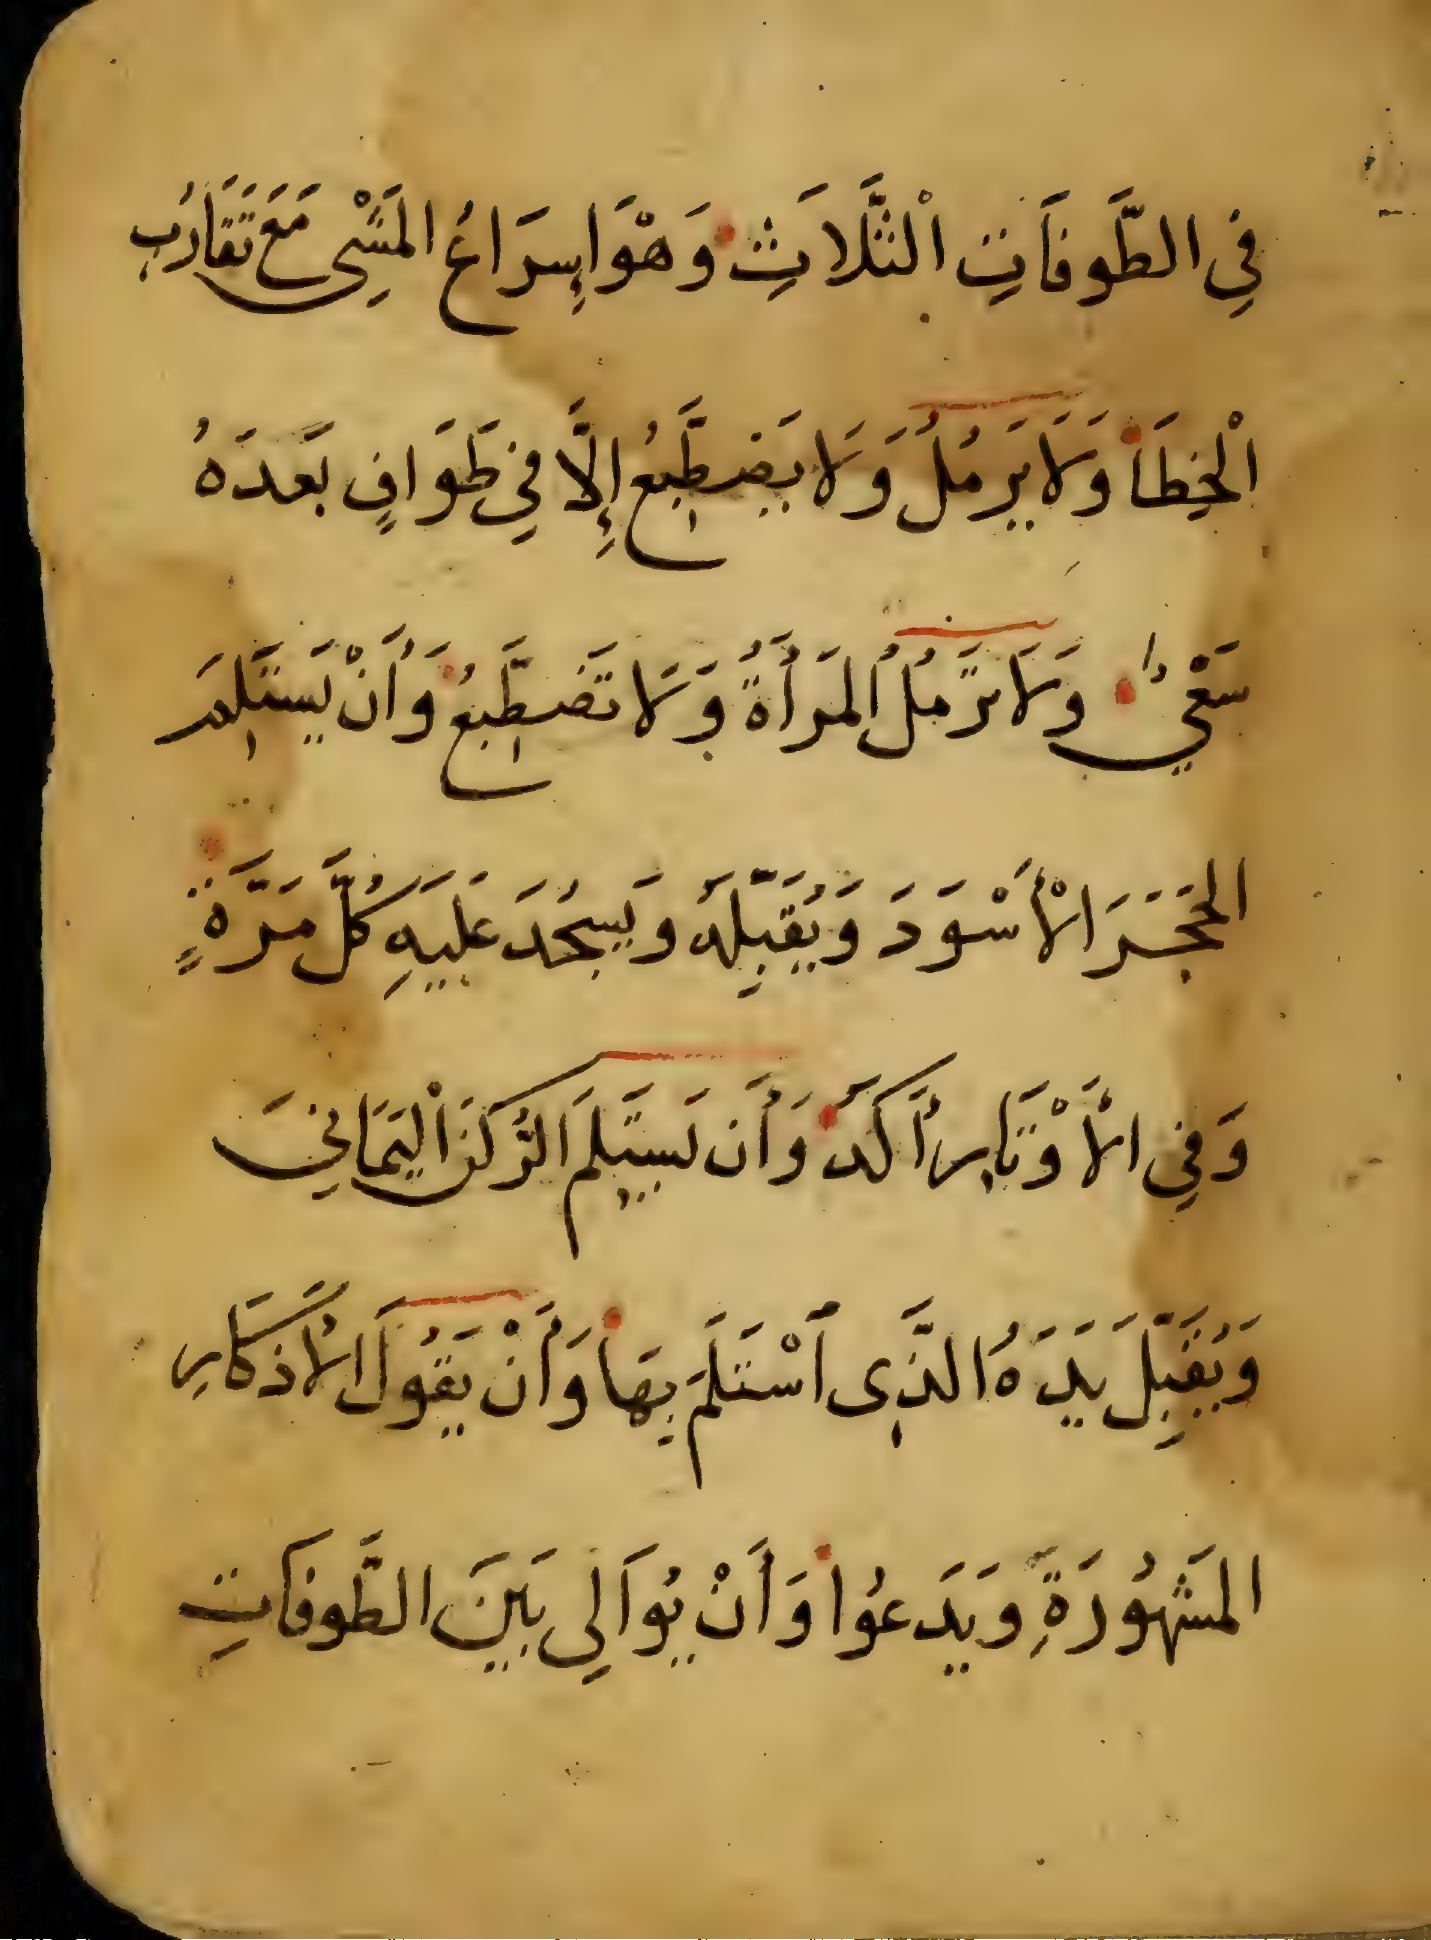 فِي الطَّوفَاتِ الْثَّلَاثِ وَهْوَ إِسرَاعُ المَشْىِ مَعَ تَقَارُبِ
الْخِطَا وَلَا يَرمُلُ وَلَا يَضطَبِعُ إِلَّا فِي طَوَافٍ بَعدَهُ
سَعْيٌ وَلَا تَرمُلُ المَرأَةُ وَلَا تَضطَبِعُ وَأَنْ يَستَلِمَ
الحَجَرَ الْأَسْوَدَ وَيُقَبِّلَهُ وَيَسجُدَ عَلَيهِ كُلَّ مَرَّةٍ
وَفِي الأَوْتَارِ أَكَدُ وَأَن يَستَلِمَ الرُّكنَ اْليَمَانِيَ
وَيُقَبِّلَ يَدَهُ الَّذِى اسْتَلَمَ بِهَا وَأَنْ يَقُولَ الأَذكَارِ
المَشهُورَةِ وَيَدعُوا وَأَنْ يُوَالِي بَينَ الطَّوفَاتِ